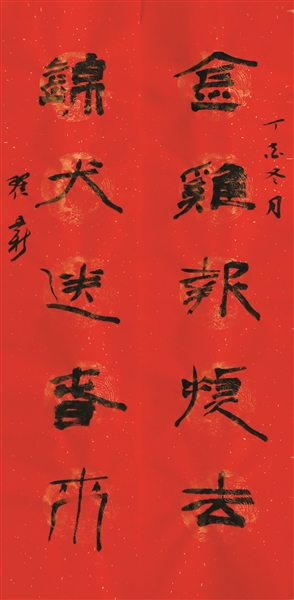 丁酉冬月
金雞報曉去
錦犬送春来
翟